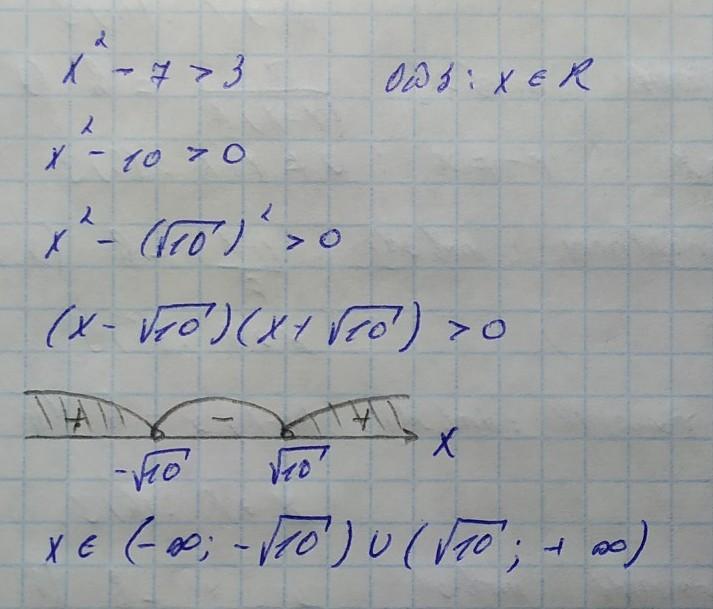 x² - 7 > 3 ОДЗ: x ∈ R
x² - 10 > 0
x² - (√10)² > 0
(x - √10)(x + √10) > 0
+ - +
-√10 √10 x
x ∈ (-∞; -√10) ∪ (√10; +∞)